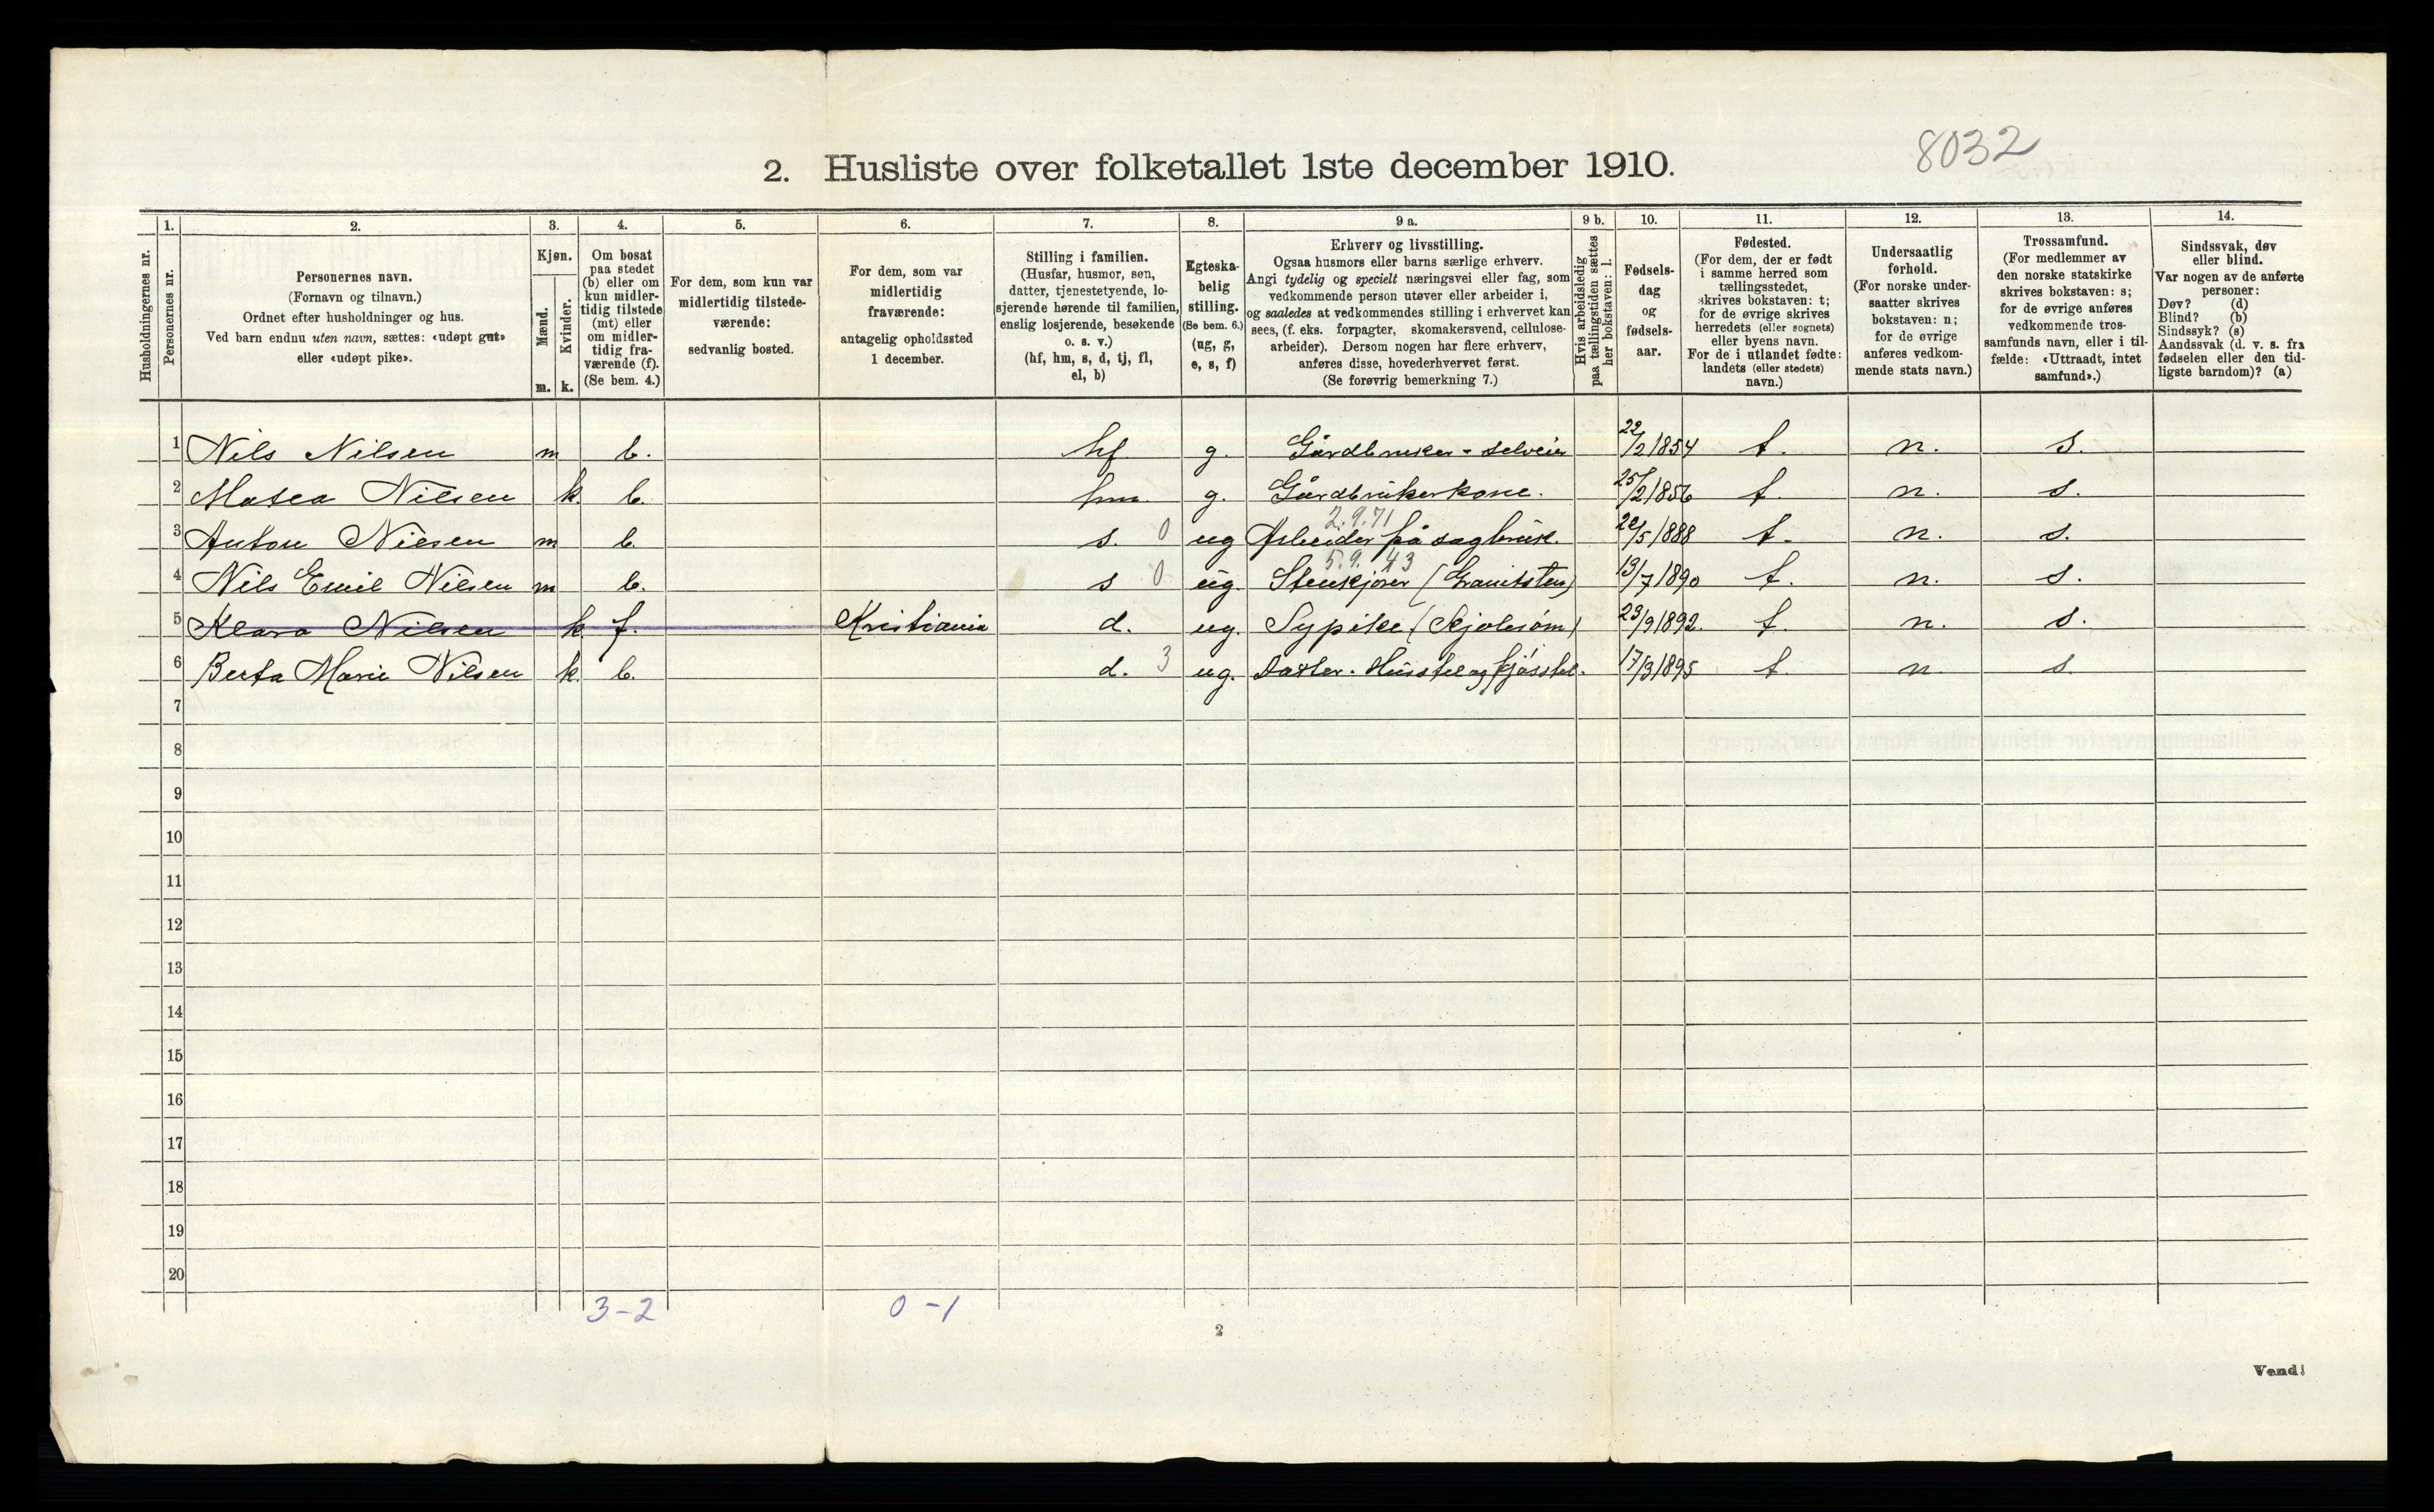 8032
2. Husliste over folketallet 1ste december 1910.
1. 2. 3. 4. 5. 6. 7. 8. 9 a. 9 b. 10. 11. 12. 13. 14.
Husholdningernes nr.
Personernes nr.
Personernes navn.
(Fornavn og tilnavn.)
Ordnet efter husholdninger og hus.
Ved barn endnu uten navn, sættes: «udøpt gut»
eller «udøpt pike».
Kjøn.
Mænd.
Kvinder.
m. k.
Om bosat
paa stedet
(b) eller om
kun midler-
tidig tilstede
(mt) eller
om midler-
tidig fra-
værende (f).
(Se bem. 4.)
For dem, som kun var
midlertidig tilstede-
værende:
sedvanlig bosted.
For dem, som var
midlertidig
fraværende:
antagelig opholdssted
1 december.
Stilling i familien.
(Husfar, husmor, søn,
datter, tjenestetyende, lo-
sjerende hørende til familien,
enslig losjerende, besøkende
o. s. v.)
(hf, hm, s, d, tj, fl,
el, b)
Egteska-
belig
stilling.
(Se bem. 6.)
(ug, g,
e, s, f)
Erhverv og livsstilling.
Ogsaa husmors eller barns særlige erhverv.
Angi tydelig og specielt næringsvei eller fag, som
vedkommende person utøver eller arbeider i,
og saaledes at vedkommendes stilling i erhvervet kan
sees, (f. eks. forpagter, skomakersvend, cellulose-
arbeider). Dersom nogen har flere erhverv,
anføres disse, hovederhvervet først.
(Se forøvrig bemerkning 7.)
Hvis arbeidsledig
paa tællingstiden sættes
her bokstaven: l.
Fødsels-
dag
og
fødsels-
aar.
Fødested.
(For dem, der er født
i samme herred som
tællingsstedet,
skrives bokstaven: t;
for de øvrige skrives
herredets (eller sognets)
eller byens navn.
For de i utlandet fødte:
landets (eller stedets)
navn.)
Undersaatlig
forhold.
(For norske under-
saatter skrives
bokstaven: n;
for de øvrige
anføres vedkom-
mende stats navn.)
Trossamfund.
(For medlemmer av
den norske statskirke
skrives bokstaven: s;
for de øvrige anføres
vedkommende tros-
samfunds navn, eller i til-
fælde: «Uttraadt, intet
samfund».)
Sindssvak, døv
eller blind.
Var nogen av de anførte
personer:
Døv? (d)
Blind? (b)
Sindssyk? (s)
Aandssvak (d. v. s. fra
fødselen eller den tid-
ligste barndom)? (a)
1 Nils Nilsen m b. hf g. Gårdbruker - selveier 22/2 1854 t. n. s.
2 Matea Nilsen k b. hm g. Gårdbrukerkone. 25/2 1856 t. n. s.
2.9.71
3 Anton Nilsen m b. s. 0 ug Arbeider på sagbruk. 22/5 1888 t. n. s.
5.9.43
4 Nils Emil Nilsen m b. s 0 ug. Stenkjører (Granitsten) 13/7 1890 t. n. s.
5 Klara Nilsen k f. Kristiania d. ug. Sypike (Kjolesøm) 23/9 1892. t. n. s.
6 Berta Marie Nilsen k b. d. 3 ug. Datter. Husstel og fjøsstel. 17/3 1895 t. n s.
7
8
9
10
11
12
13
14
15
16
17
18
19
20
3-2 0-1
2
Vend!